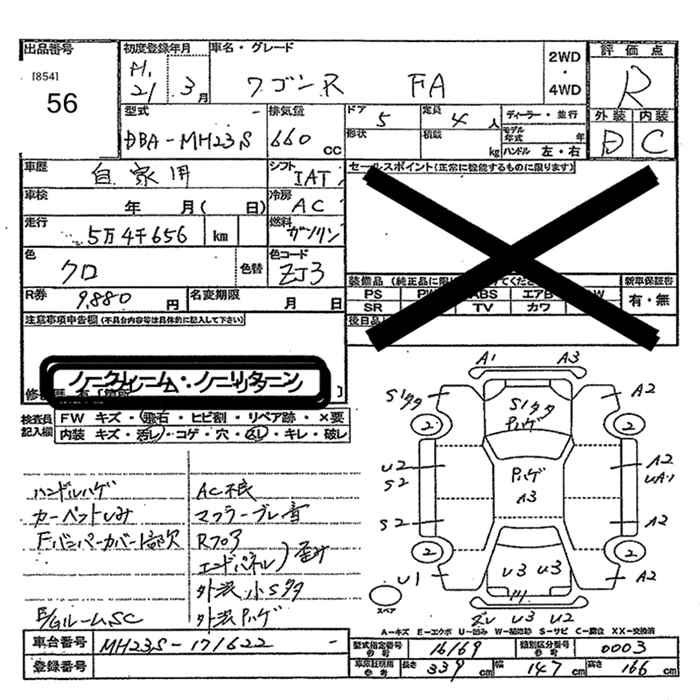 出品番号 初度登録年月 車名・グレード 評価点
[854] 56
H. 21年 3月 ワゴンR FA 2WD・4WD R
型式 - 排気量 ドア 5 定員 4人 ディーラー・並行 外装 内装
DBA-MH23S 660cc 形状 積載 kg モデル年式 年 D C
ハンドル 左・右
車歴 自家用 シフト IAT セールスポイント(正常に機能するものに限ります)
車検 年 月( 日) 冷房 AC
走行 5万4千656 km 燃料 ガソリン
色 クロ 色替 色コード ZJ3 装備品(純正品に限
新車保証書
PS ABS エアB
SR TV カワ 有・無
R券 9,880円 名変期限 月 日
後日品
注意事項申告欄(不具合内容等は具体的に記入して下さい)
ノークレーム・ノーリターン
検査員記入欄 FW キズ・飛石・ヒビ割・リペア跡・×要
内装 キズ・汚レ・コゲ・穴・凹ミ・キレ・破レ
ハンドルハゲ AC不良
カーペットしみ マフラーブレ音
Fバンパーカバー1部欠 Rフロア
エンドパネル)歪み
外装小Sクタ
E/GルームSC 外装Pハゲ
A1 A3
S1クタ S1クタ Pハゲ A2
2 2
U2 Pハゲ A2
S2 A3 UA1
S2 A2
2 2
U1 U3 U3 A2
スペア U3 U2
A-キズ E-エクボ U-凹み W-補修跡 S-サビ C-腐食 XX-交換済
車台番号 MH23S-171622 - 型式指定番号参考 16169 類別区分番号参考 0003
登録番号 車庫証明用参考 長さ 339cm 幅 147cm 高さ 166cm